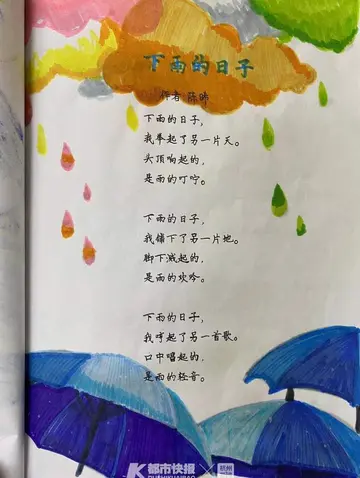 下雨的日子
作者 陈昑
下雨的日子，
我举起了另一片天。
头顶响起的，
是雨的叮咛。
下雨的日子，
我铺下了另一片地。
脚下溅起的，
是雨的欢吟。
下雨的日子，
我哼起了另一首歌。
口中唱起的，
是雨的轻音。
都市快报
DUSHIKUAIBAO
杭州